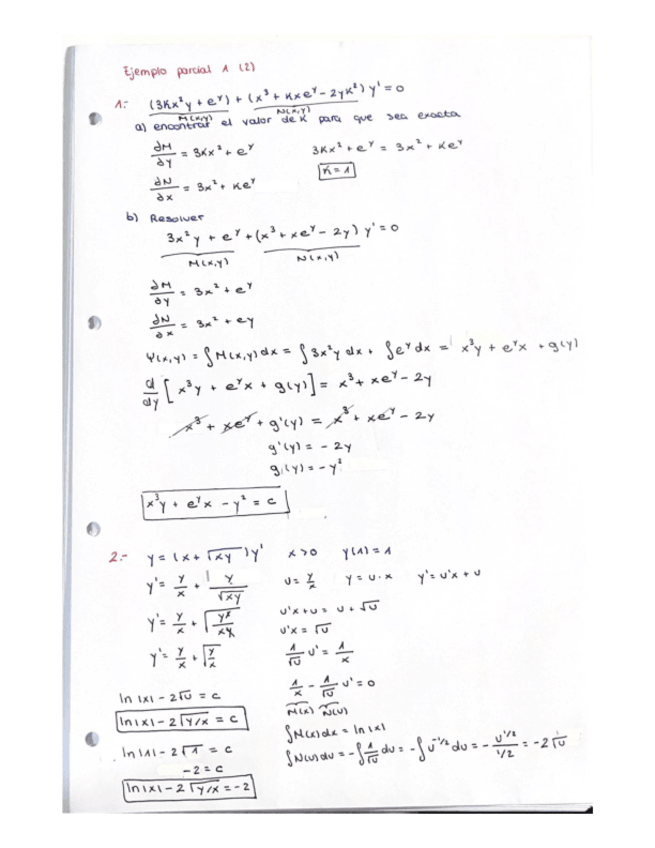 Ejemplo parcial 1 (2)
1:- (3Kx²y + e^y) + (x³ + Kxe^y - 2yK²) y' = 0
M(x,y) N(x,y)
a) encontrar el valor de K para que sea exacta
∂M/∂y = 3Kx² + e^y 3Kx² + e^y = 3x² + Ke^y
∂N/∂x = 3x² + Ke^y K = 1
b) Resolver
3x²y + e^y + (x³ + xe^y - 2y) y' = 0
M(x,y) N(x,y)
∂M/∂y = 3x² + e^y
∂N/∂x = 3x² + ey
Ψ(x,y) = ∫M(x,y)dx = ∫3x²y dx + ∫e^y dx = x³y + e^y x + g(y)
d/dy [x³y + e^y x + g(y)] = x³ + xe^y - 2y
x³ + xe^y + g'(y) = x³ + xe^y - 2y
g'(y) = - 2y
g(y) = - y²
x³y + e^y x - y² = c
2:- y = (x + √xy) y' x > 0 y(1) = 1
y' = y/x + y/√xy u = y/x y = u·x y' = u'x + u
y' = y/x + √y²/xy u'x + u = u + √u
u'x = √u
y' = y/x + √y/x 1/√u u' = 1/x
1/x - 1/√u u' = 0
ln |x| - 2√u = c M(x) N(u)
ln |x| - 2√y/x = c ∫M(x)dx = ln |x|
ln |1| - 2√1 = c ∫N(u)du = -∫1/√u du = -∫u^-1/2 du = - u^1/2 / 1/2 = -2√u
-2 = c
ln |x| - 2√y/x = -2